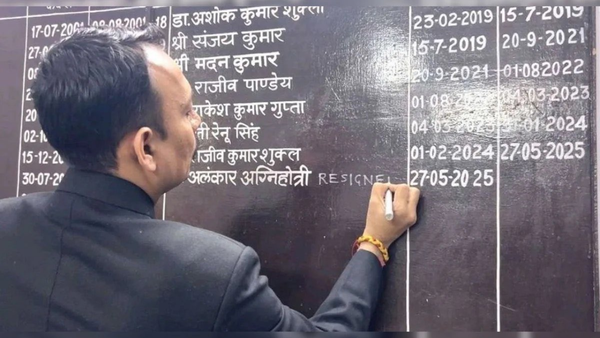 17-07-2001 08-08-2001 18 डा.अशोक कुमार शुक्ला 23-02-2019 15-7-2019
श्री संजय कुमार 15-7-2019 20-9-2021
श्री मदन कुमार 20-9-2021 01-08-2022
राजीव पाण्डेय 01-08-2022 04-03-2023
राकेश कुमार गुप्ता 04-03-2023
रेनू सिंह 01-02-2024
15-12- राजीव कुमार शुक्ल 01-02-2024 27-05-2025
30-07- अलंकार अग्निहोत्री RESIGNE 27-05-2025